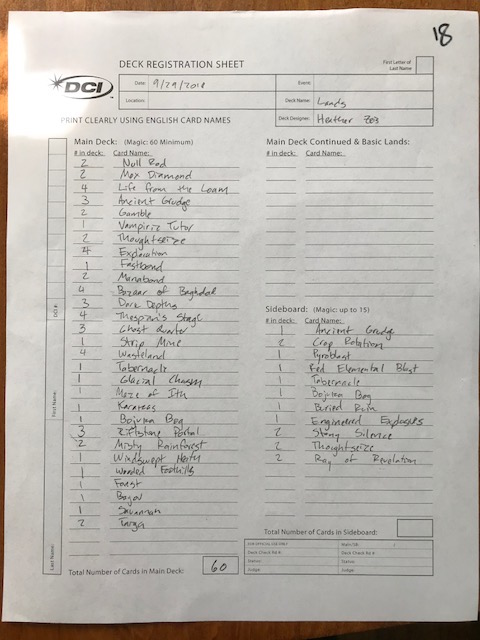 18
DECK REGISTRATION SHEET
First Letter of
Last Name
DCI
Date: 9/29/2018
Event:
Location:
Deck Name: Lands
Deck Designer: Heather
PRINT CLEARLY USING ENGLISH CARD NAMES
Main Deck: (Magic: 60 Minimum)
# in deck: Card Name:
2 Null Rod
2 Mox Diamond
4 Life from the Loam
3 Ancient Grudge
2 Gamble
1 Vampiric Tutor
2 Thoughtseize
4 Exploration
1 Fastbond
2 Manabond
4 Bazaar of Baghdad
3 Dark Depths
4 Thespian's Stage
3 Ghost Quarter
1 Strip Mine
4 Wasteland
1 Tabernacle
1 Glacial Chasm
1 Maze of Ith
1 Karakas
1 Bojuka Bog
3 Riftstone Portal
2 Misty Rainforest
1 Windswept Heath
1 Wooded Foothills
1 Forest
1 Bayou
1 Savannah
2 Taiga
Total Number of Cards in Main Deck: 60
Main Deck Continued & Basic Lands:
# in deck: Card Name:
Sideboard: (Magic: up to 15)
# in deck: Card Name:
1 Ancient Grudge
2 Crop Rotation
1 Pyroblast
1 Red Elemental Blast
1 Tabernacle
1 Bojuka Bog
1 Buried Ruin
1 Engineered Explosives
2 Stony Silence
2 Thoughtseize
2 Ray of Revelation
Total Number of Cards in Sideboard:
FOR OFFICIAL USE ONLY
Main/SB: /
Deck Check Rd #:
Deck Check Rd #:
Status:
Status:
Judge:
Judge:
DCI #:
First Name:
Last Name: